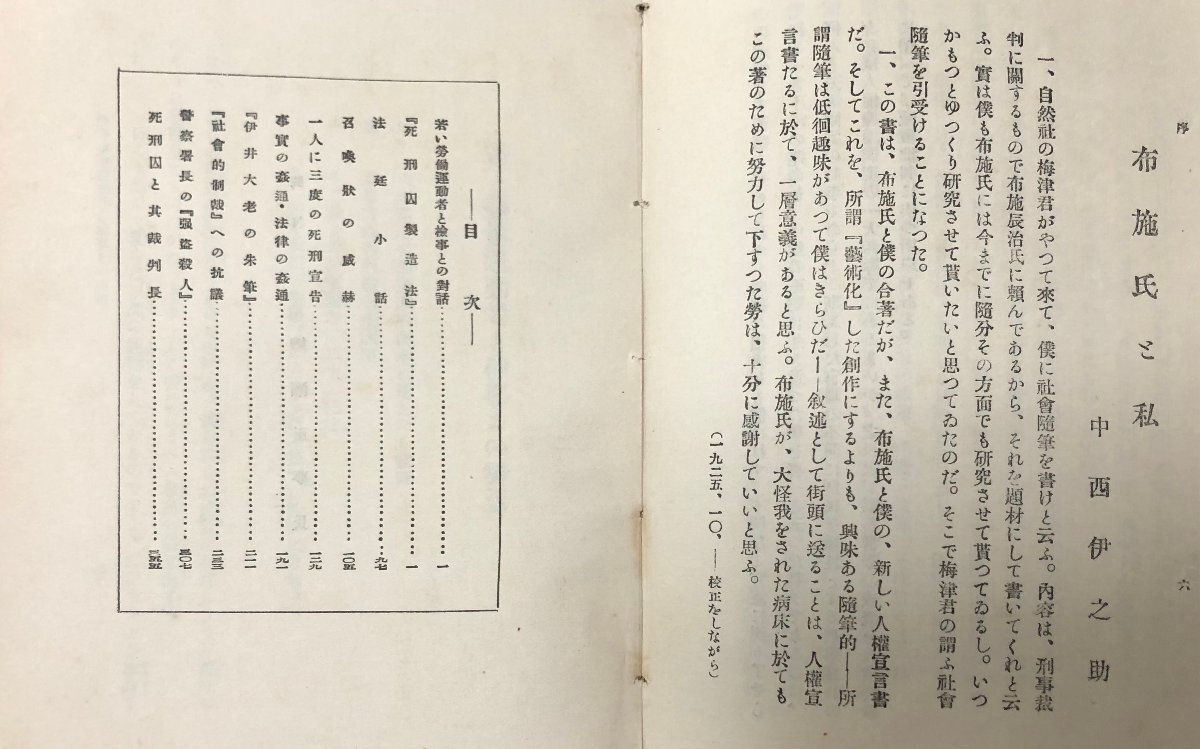 序
六
布施氏と私
中西伊之助
一、自然社の梅津君がやつて來て、僕に社會隨筆を書けと云ふ。內容は、刑事裁
判に關するもので布施辰治氏に賴んであるから、それを題材にして書いてくれと云
ふ。實は僕も布施氏には今までに隨分その方面でも研究させて貰つてゐるし。いつ
かもつとゆつくり研究させて貰いたいと思つてゐたのだ。そこで梅津君の謂ふ社會
隨筆を引受けることになつた。
一、この書は、布施氏と僕の合著だが、また、布施氏と僕の、新しい人權宣言書
だ。そしてこれを、所謂『藝術化』した創作にするよりも、興味ある隨筆的――所
謂隨筆は低徊趣味があつて僕はきらひだ――叙述として街頭に送ることは、人權宣
言書たるに於て、一層意義があると思ふ。布施氏が、大怪我をされた病床に於ても
この著のために努力して下すつた勞は、十分に感謝していいと思ふ。
(一九二五、一〇、――校正をしながら)
――目次――
若い勞働運動者と檢事との對話…………一
『死刑囚製造法』…………一
法廷小話…………九七
召喚狀の威赫…………一〇五
一人に三度の死刑宣告…………一二九
事實の姦通・法律の姦通…………一九一
『伊井大老の朱筆』…………二一一
『社會的制裁』への抗議…………二三三
警察署長の『强盜殺人』…………三〇七
死刑囚と其裁判長…………三五五